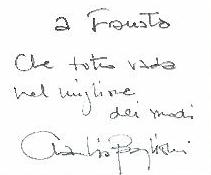 a Fausto
Che tutto vada
nel migliore
dei modi
Claudio Baglioni